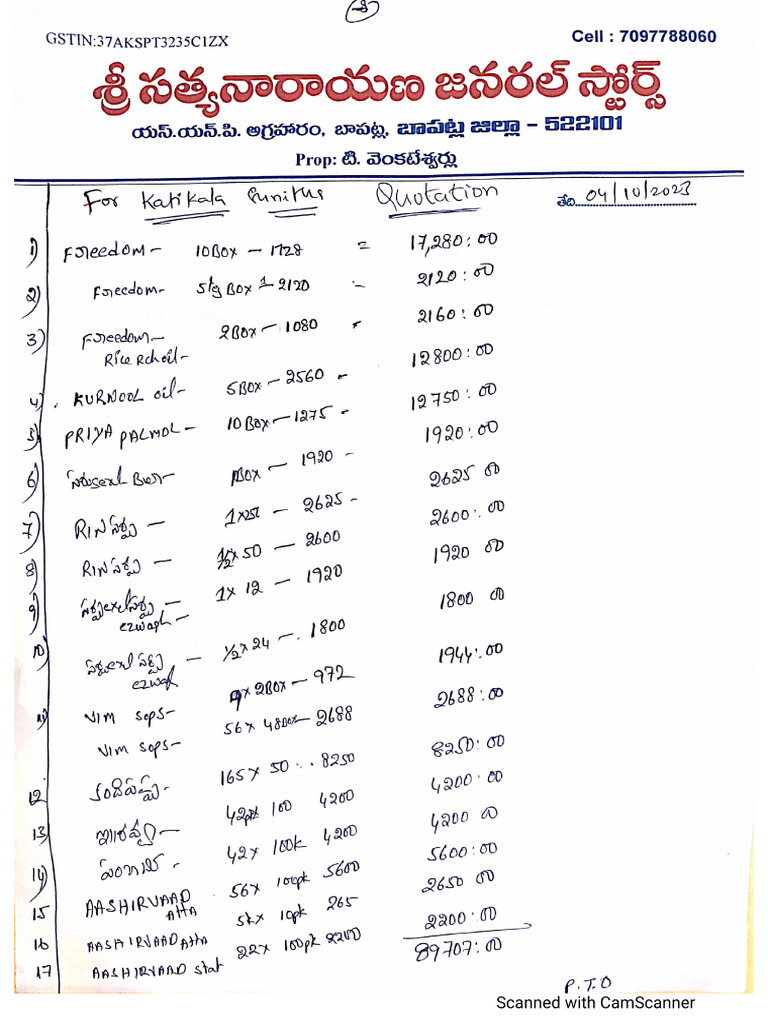 8
GSTIN:37AKSPT3235C1ZX
Cell : 7097788060
శ్రీ సత్యనారాయణ జనరల్ స్టోర్స్
యస్.యన్.పి. అగ్రహారం, బాపట్ల, బాపట్ల జిల్లా - 522101
Prop: టి. వెంకటేశ్వర్లు
For Katikala Sunitha Quotation తేది 04/10/2023
1) Freedom - 10Box - 1728 = 17,280:00
2) Freedom - 5kg Box 1 - 2120 - 2120:00
3) Freedom - 2Box - 1080 - 2160:00
Rice Rch oil -
4) KURNOOL oil - 5Box - 2560 - 12800:00
5) PRIYA PALMOL - 10Box - 1275 - 12750:00
6) 1Box - 1920 - 1920:00
7) RIN సర్ఫు - 2625 - 2625 00
8) RIN సర్ఫు - 1/2 x 50 - 2600 2600:00
9) 1 x 12 - 1920 1920 00
10) 1/2 x 24 - 1800 1800 00
11) VIM sops - 2Box - 972 1944:00
VIM sops - 56 x 48Box - 2688 2688:00
12 కందిపప్పు - 165 x 50 8250 8250:00
13) 42pk 100 4200 4200:00
14) 42 x 100k 4200 4200 00
15 AASHIRVAAD 56 x 100pk 5600 5600:00
ATTA
16 AASHIRVAAD ATTA 5k x 10pk 265 2650 00
17 AASHIRVAAD 22 x 100pk 2200 2200:00
89707:00
P.T.O
Scanned with CamScanner